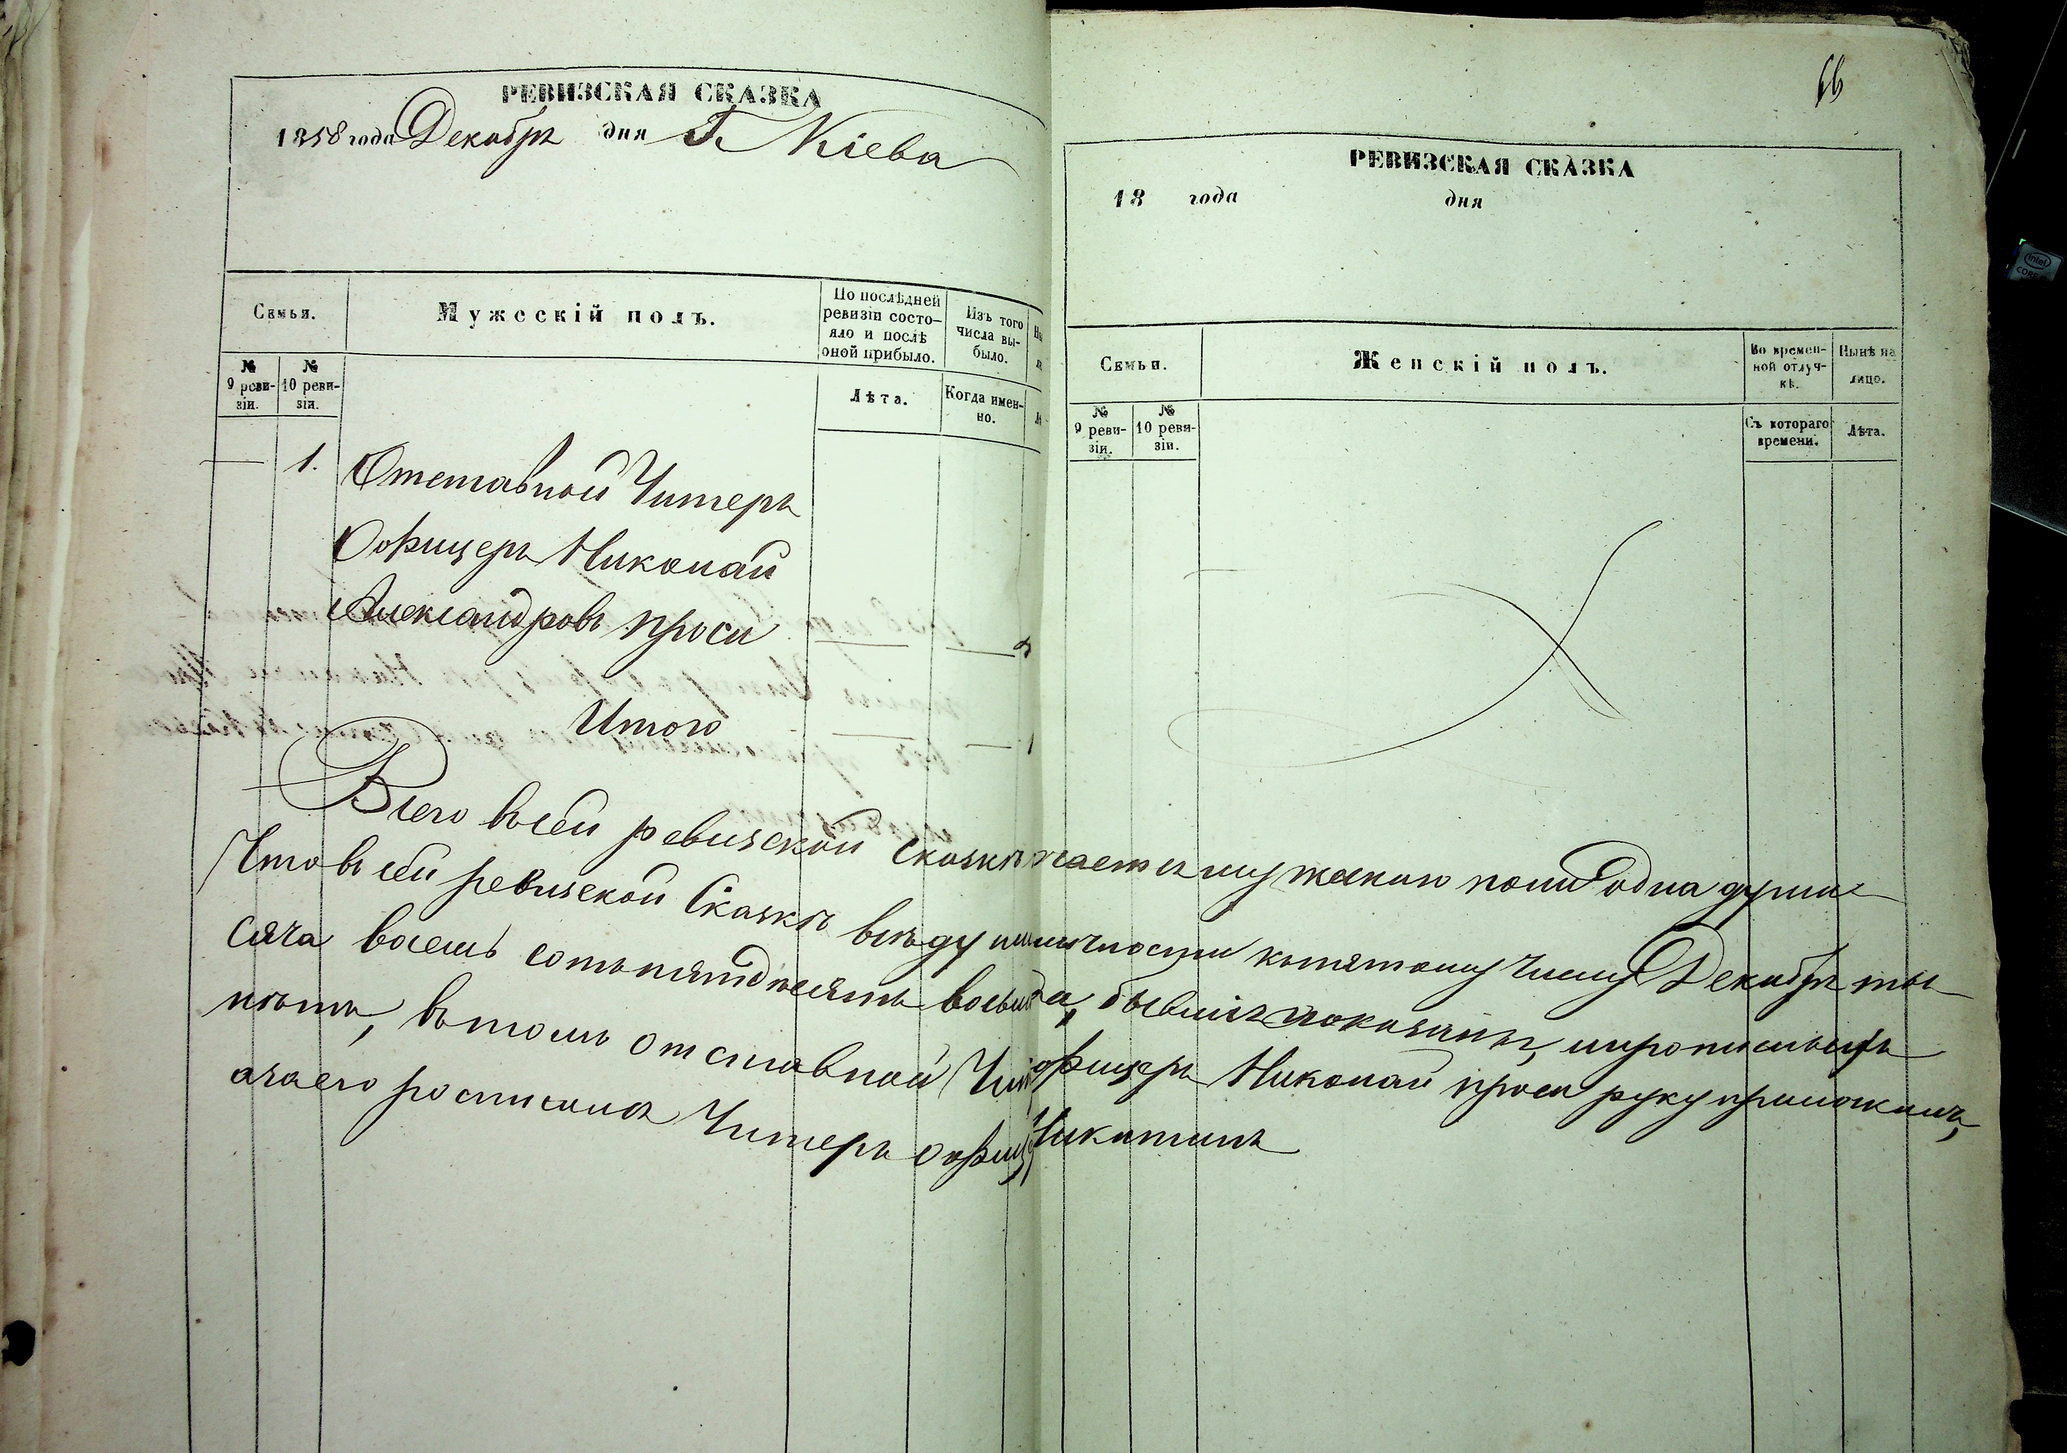 РЕВИЗСКАЯ СКАЗКА
1858 года Декабря дня Г. Кіева
Семьи.
Мужескій полъ.
По послѣдней ревизіи состо-
яло и послѣ
оной прибыло.
Изъ того
числа вы-
было.
№
9 реви-
зіи.
№
10 реви-
зіи.
Лѣта.
Когда имен-
но.
1.
Отставной Унтеръ
Офицеръ Николай
Александровъ Проси
Итого
1
66
РЕВИЗСКАЯ СКАЗКА
18 года дня
Семьи.
Женскій полъ.
Во времен-
ной отлуч-
кѣ.
Нынѣ на
лицо.
№
9 реви-
зіи.
№
10 реви-
зіи.
Съ котораго
времени.
Лѣта.
Всего въ сей ревизской сказкѣ мужеска пола одна душа
Что въ сей ревизской Сказкѣ всѣ души къ пятому числу Декабря ты
сяча восемь сотъ пятдесятъ бывшіе показаны, и прописныхъ
нѣтъ, въ томъ отставной Унтеръ офицеръ Николай Проси руку приложилъ,
а за его росписался Унтеръ офиц. Никитинъ